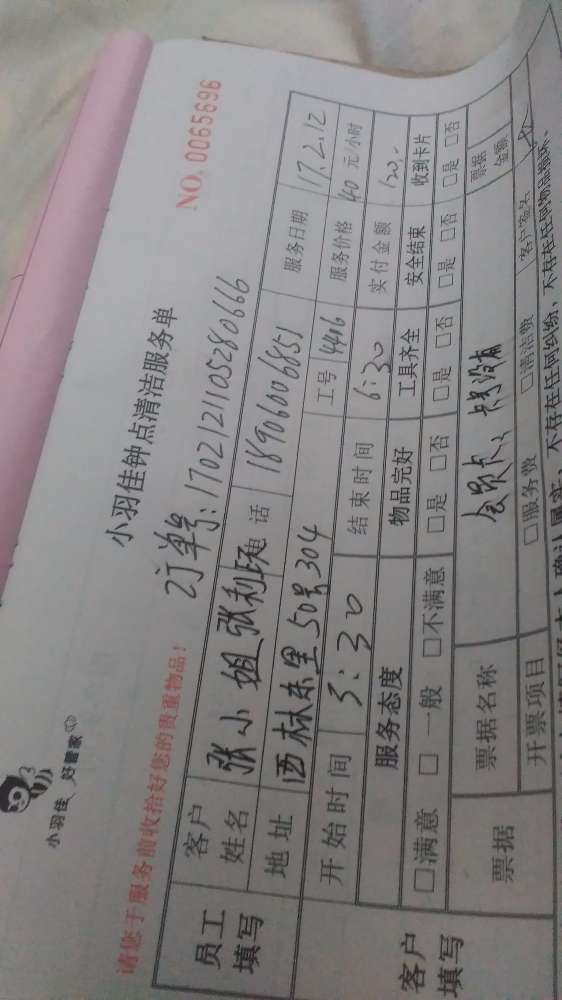 小羽佳 好管家
小羽佳钟点清洁服务单
NO. 0065696
请您于服务前收拾好您的贵重物品!
订单号:170212110528066​6
员工填写
客户姓名 张小姐 张利 电话 18906006851 服务日期 17.2.12
地址 西林东里50号304 工号 4406 服务价格 40 元/小时
开始时间 3:30 结束时间 6:30 实付金额 120.-
客户填写
服务态度 物品完好 工具齐全 安全结束 收到卡片
□满意 □一般 □不满意 □是 □否 □是 □否 □是 □否 □是 □否
票据 票据名称 会员卡、卡号没有 票据金额
开票项目 □服务费 □清洁费 客户签名
不存在任何纠纷,不存在任何物品损坏。